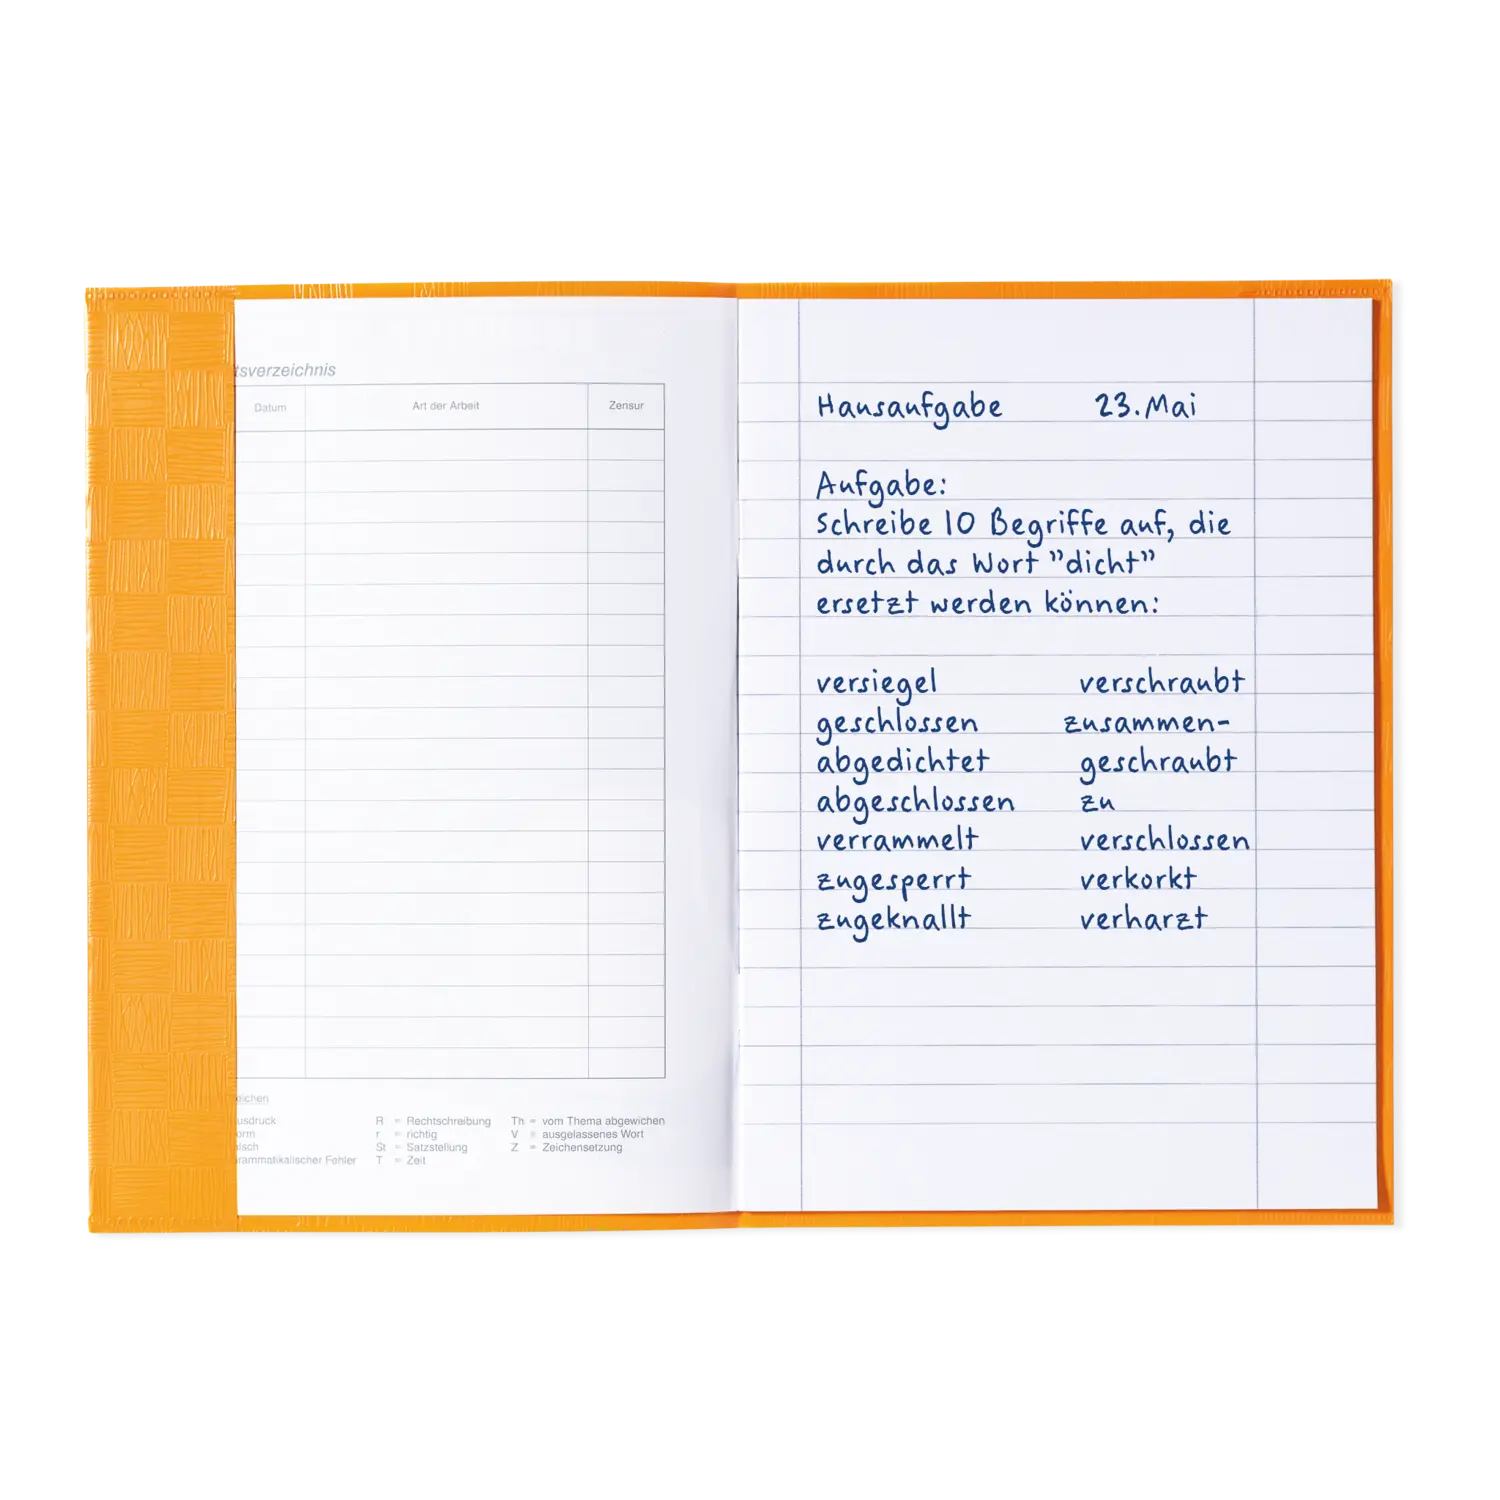 tsverzeichnis
Datum Art der Arbeit Zensur
eichen
usdruck R = Rechtschreibung Th = vom Thema abgewichen
orm r = richtig V = ausgelassenes Wort
lsch St = Satzstellung Z = Zeichensetzung
rammatikalischer Fehler T = Zeit
Hausaufgabe 23. Mai
Aufgabe:
Schreibe 10 Begriffe auf, die
durch das Wort "dicht"
ersetzt werden können:
versiegel verschraubt
geschlossen zusammen-
abgedichtet geschraubt
abgeschlossen zu
verrammelt verschlossen
zugesperrt verkorkt
zugeknallt verharzt